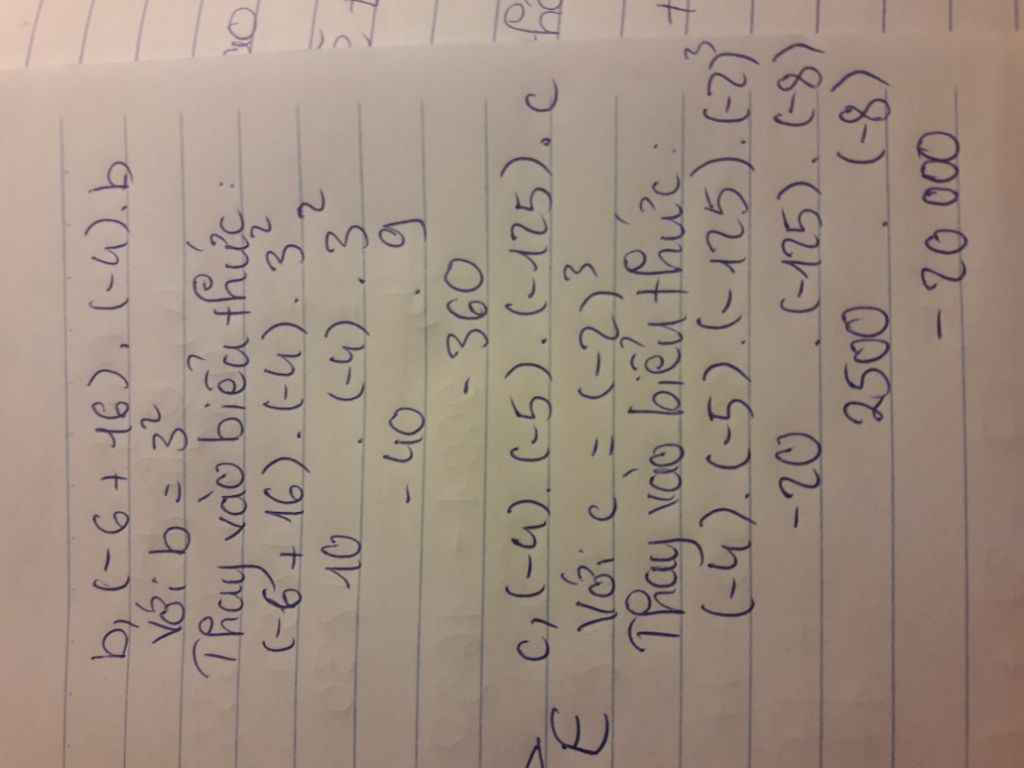 b, (-6 + 16) . (-4) . b
Với b = 3²
Thay vào biểu thức:
(-6 + 16) . (-4) . 3²
10 . (-4) . 3²
-40 . 9
-360
c, (-4) . (-5) . (-125) . c
E Với c = (-2)³
Thay vào biểu thức:
(-4) . (-5) . (-125) . (-2)³
-20 . (-125) . (-8)
2500 . (-8)
-20 000